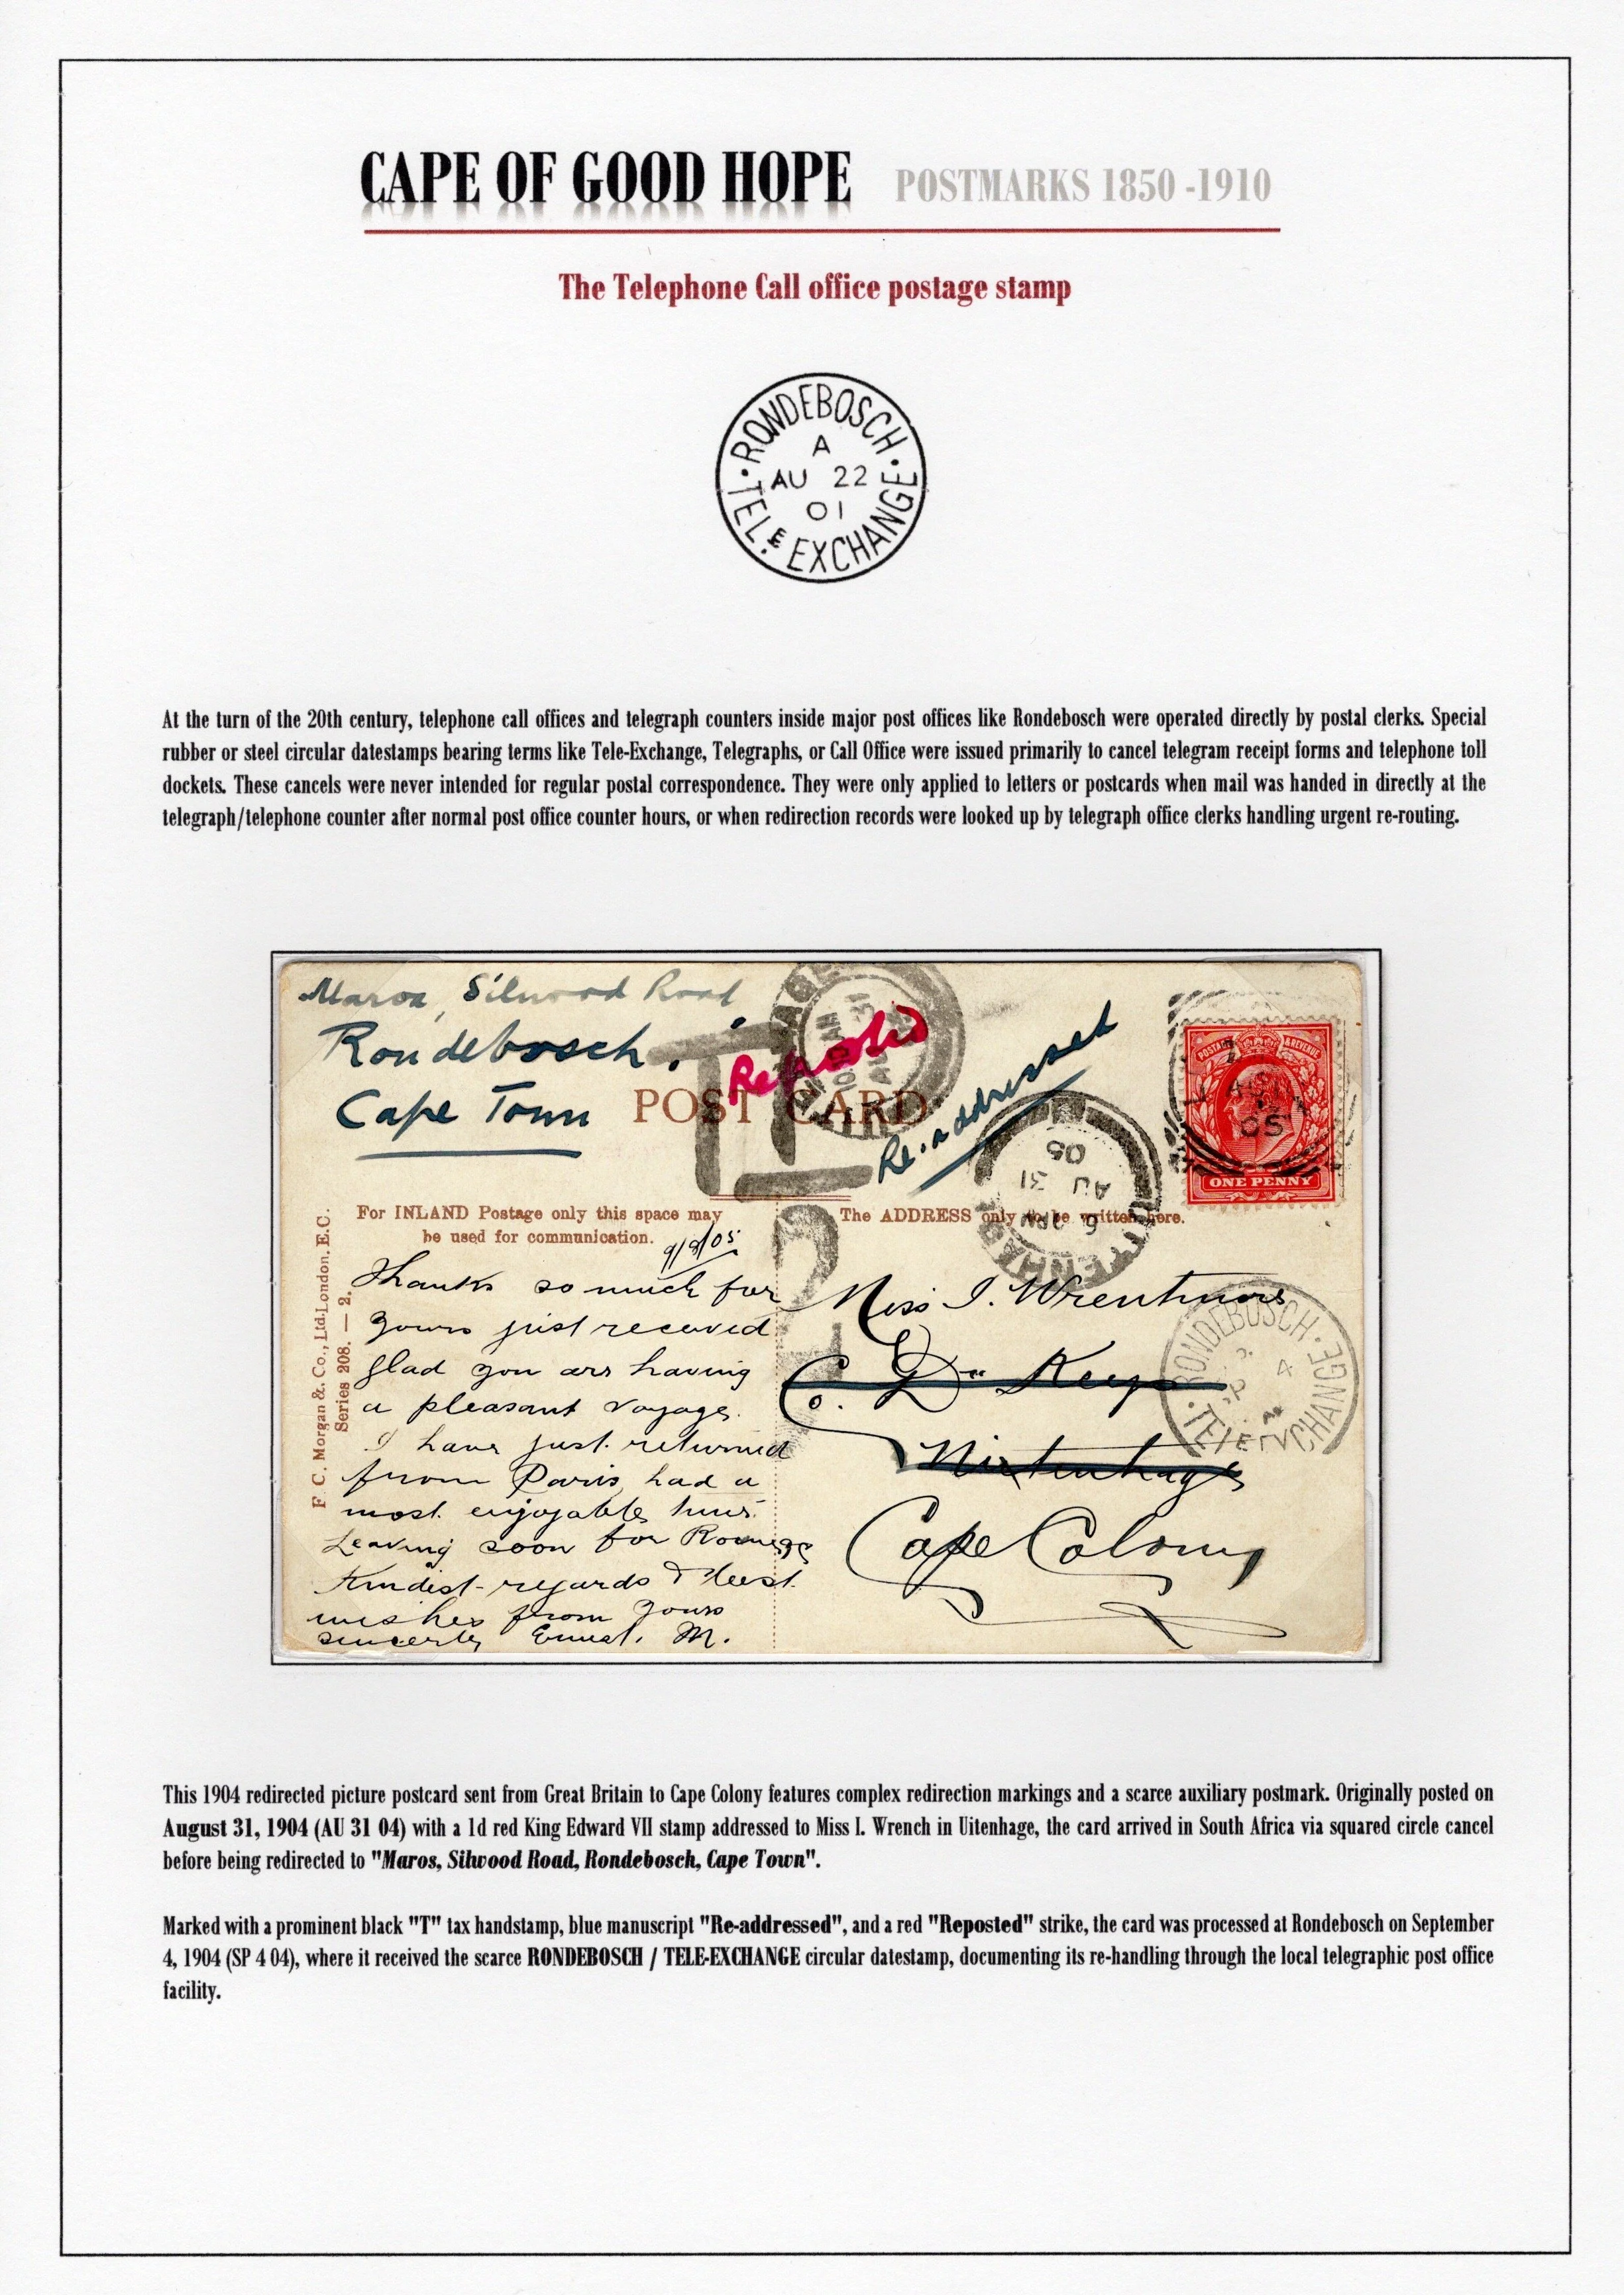 CAPE OF GOOD HOPE POSTMARKS 1850 -1910
The Telephone Call office postage stamp
RONDEBOSCH
A
AU 22
01
TEL.E EXCHANGE
At the turn of the 20th century, telephone call offices and telegraph counters inside major post offices like Rondebosch were operated directly by postal clerks. Special
rubber or steel circular datestamps bearing terms like Tele-Exchange, Telegraphs, or Call Office were issued primarily to cancel telegram receipt forms and telephone toll
dockets. These cancels were never intended for regular postal correspondence. They were only applied to letters or postcards when mail was handed in directly at the
telegraph/telephone counter after normal post office counter hours, or when redirection records were looked up by telegraph office clerks handling urgent re-routing.
Silwood Road
Rondebosch.
Cape Town
Reposted
Re-addressed
POST CARD
T
POSTAGE & REVENUE
05
ONE PENNY
AU 31
05
For INLAND Postage only this space may
be used for communication.
The ADDRESS only to be written here.
F. C. Morgan &. Co., Ltd. London. E.C.
Series 208. — 2.
9/8/05
Thanks so much for
yours just received
glad you are having
a pleasant voyage.
I have just returned
from Paris, had a
most enjoyable time.
Leaving soon for
Kindest regards & best
wishes from yours
sincerely Ernest. M.
Miss I.
Cape Colony
RONDEBOSCH
4
This 1904 redirected picture postcard sent from Great Britain to Cape Colony features complex redirection markings and a scarce auxiliary postmark. Originally posted on
August 31, 1904 (AU 31 04) with a 1d red King Edward VII stamp addressed to Miss I. Wrench in Uitenhage, the card arrived in South Africa via squared circle cancel
before being redirected to "Maros, Silwood Road, Rondebosch, Cape Town".
Marked with a prominent black "T" tax handstamp, blue manuscript "Re-addressed", and a red "Reposted" strike, the card was processed at Rondebosch on September
4, 1904 (SP 4 04), where it received the scarce RONDEBOSCH / TELE-EXCHANGE circular datestamp, documenting its re-handling through the local telegraphic post office
facility.